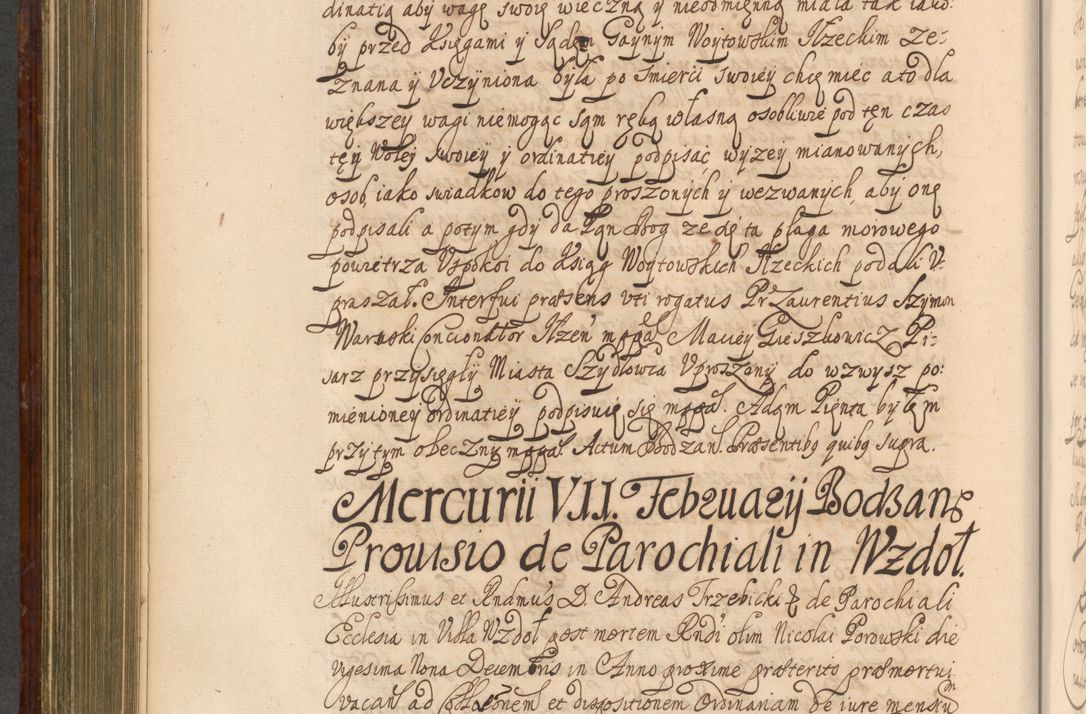 dinatią aby wagę swoię wieczną y nieodmienną miała tak iako:
by przed Księgami y Sądem Gaynym Woytowskim Iłzeckim Ze-
znana y Uczyniona była po śmierci swoiey chcę miec a to dla
większey wagi niemogąc sąm ręką własną osobliwie pod tęn czas
tęy Wolej swoiey y ordinatiey podpisać wyzey mianowanych,
osob, iako swiadkow do tego proszonych y wezwanych, aby onę
podpisali a potym gdy da Pąn Bog ze dę ta plaga morowego
powietrza Uspokoi do Ksiąg Woytowskich Iłzeckich podali U-
praszał. Interfui præsens uti rogatus Pr Laurentius Szymon
Warwski Concionator Ilzen mppa. Maciey Gieszkowicz Pi-
sarz przysięgły Miasta Szydłowca Uproszony do wzwysz po:
mienioney Ordinatiey podpisuię się mppa. Adąm Pięnta byłęm
przy tym obecznym mppa. Actum Bodzan. Præsentibq quibq supra.
Mercurii VII. Februarij Bodzan
Provisio de Parochiali in Wzdoł.
Illustrissimus et Rndmus D. Andreas Trzebicki & de Parochiali
Ecclesia in Villa Wzdoł post mortem Rndi olim Nicolai Porowski die
vigesima Nona Decembris in Anno proxime præterito præmortui
vacan ad Collaōnem et dispositionem Ordinariam de iure mensiū